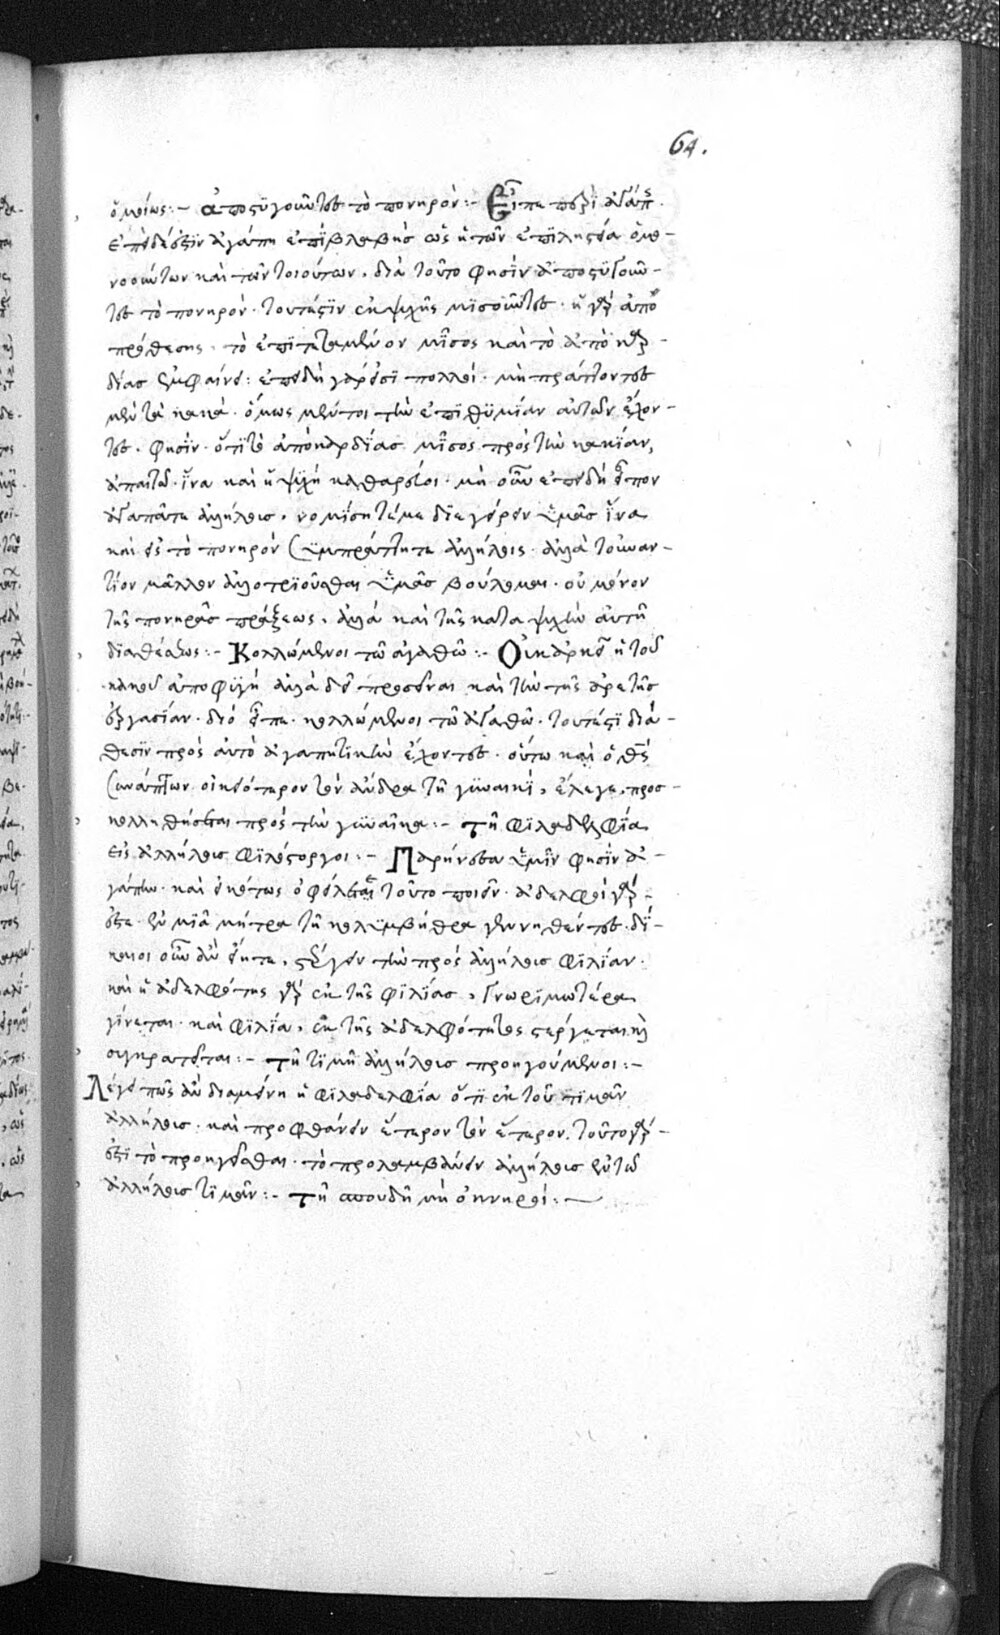 64.
ὁμοίως:- ἀποστυγοῦντες τὸ πονηρόν:- Εἶπε περὶ ἀγάπης.
ἐπεὶ δέ ἐστιν ἀγάπη ἐπιβλαβὴς ὡς ἡ τῶν ἐπὶ ληστεία ὁμο-
νοούντων καὶ τῶν τοιούτων, διὰ τοῦτο φησὶν ἀποστυγοῦν-
τες τὸ πονηρόν· τουτέστιν ἐκ ψυχῆς μισοῦντες· ἡ γὰρ ἀπο
πρόθεσης· τὸ ἐπιτεταμένον μῖσος καὶ τὸ ἀπὸ καρ-
δίας ἐμφαίνει: ἐπειδὴ γάρ εἰσι πολλοί· μὴ πράττοντες
μὲν τὰ κακά· ὅμως μέντοι τὴν ἐπιθυμίαν αὐτῶν ἔχον-
τες. φησὶν· ὅτι τὸ ἀπὸ καρδίας μῖσος πρὸς τὴν κακίαν,
ἀπαιτῶ· ἵνα καὶ ἡ ψυχὴ καθαρεύοι· μὴ οὖν ἐπειδὴ εἶπον
ἀγαπᾶτε ἀλλήλοις, νομίσητέ με διεγείρειν ὑμᾶς ἵνα
καὶ εἰς τὸ πονηρὸν συμπράττητε ἀλλήλοις· ἀλλὰ τοὐναν-
τίον μᾶλλον ἀλλοτριοῦσθαι ὑμᾶς βούλομαι· οὐ μόνον
τῆς πονηρᾶς πράξεως, ἀλλὰ καὶ τῆς κατα ψυχὴν αὐτῆ
διαθέσεως:- Κολλώμενοι τῶ ἀγαθῶ:- Οὐκ ἀρκεῖ ἡ τοῦ
κακοῦ ἀποφυγὴ ἀλλὰ δεῖ προσεῖναι καὶ τὴν τῆς ἀρετῆς
ἐργασίαν· διὸ εἶπε· κολλώμενοι τῶ ἀγαθῶ· τουτέστι διά-
θεσιν πρὸς αὐτὸ ἀγαπητικὴν ἔχοντες· οὕτω καὶ ὁ θς
συνάπτων οἰκειότερον τὸν ἄνδρα τῆ γυναικὶ, ἔλεγε, προσ-
κολληθήσεται πρὸς τὴν γυναῖκα:- τῆ φιλαδελφία
εἰς ἀλλήλοις φιλόστοργοι:- Παρήνεσα ὑμῖν φησὶν ἀ-
γάπην· καὶ εἰκότως ὀφείλεται τοῦτο ποιεῖν· ἀδελφοὶ γάρ
ἐστε· ἐν μιᾶ μήτρα τῆ κολυμβήθρα γεννηθέντες· δί-
καιοι οὖν ἂν εἴητε, στέργειν τὴν πρὸς ἀλλήλοις φιλίαν·
καὶ ἡ ἀδελφότης γὰρ ἐκ τῆς φιλίας, γνωριμωτέρα
γίνεται· καὶ φιλία, ἐκ τῆς ἀδελφότητος στέργεται καὶ
συγκρατεῖται:- τῆ τιμῆ ἀλλήλοις προηγούμενοι:-
Λέγει πῶς ἂν διαμένη ἡ φιλαδελφία ὅτι ἐκ τοῦ τιμᾶν
ἀλλήλοις· καὶ προφθάνειν ἕτερον τὸν ἕτερον. τοῦτο γάρ-
ἐστι τὸ προηγεῖσθαι· τὸ προλαμβάνειν ἀλλήλοις ἐν τῶ
ἀλλήλοις τιμᾶν:- τῆ σπουδῆ μὴ ὀκνηροί:-